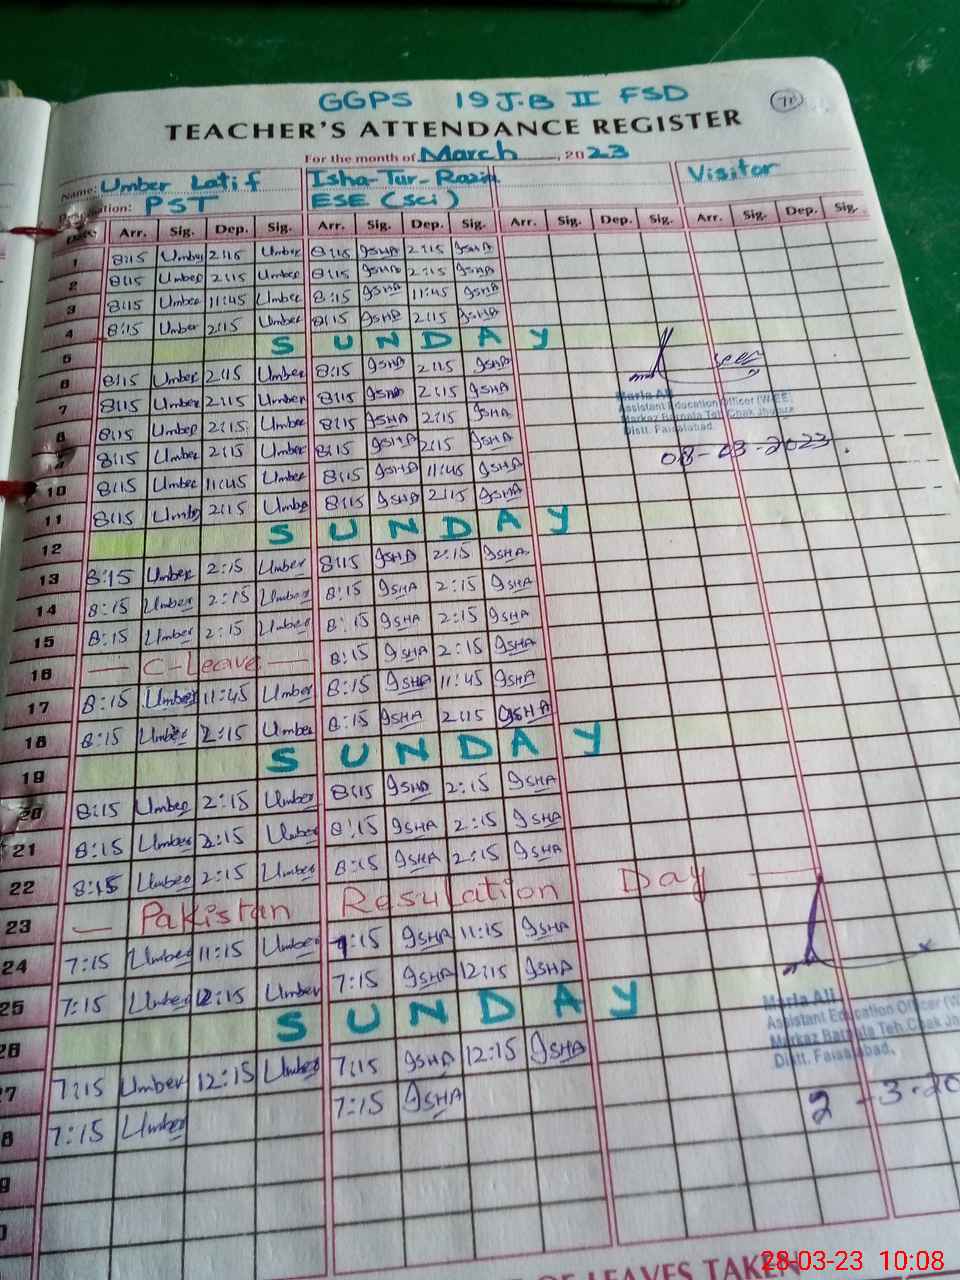 GGPS 19 J.B II FSD
71
TEACHER'S ATTENDANCE REGISTER
For the month of March, 2023
Name: Umber Latif Isha-Tur-Razia Visitor
Designation: PST ESE (Sci)
Date Arr. Sig. Dep. Sig. Arr. Sig. Dep. Sig. Arr. Sig. Dep. Sig. Arr. Sig. Dep. Sig.
1 8:15 Umber 2:15 Umber 8:15 ISHA 2:15 ISHA
2 8:15 Umber 2:15 Umber 8:15 ISHA 2:15 ISHA
3 8:15 Umber 11:45 Umber 8:15 ISHA 11:45 ISHA
4 8:15 Umber 2:15 Umber 8:15 ISHA 2:15 ISHA
5 SUNDAY
6 8:15 Umber 2:15 Umber 8:15 ISHA 2:15 ISHA
7 8:15 Umber 2:15 Umber 8:15 ISHA 2:15 ISHA
8 8:15 Umber 2:15 Umber 8:15 ISHA 2:15 ISHA
8:15 Umber 2:15 Umber 8:15 ISHA 2:15 ISHA
10 8:15 Umber 11:45 Umber 8:15 ISHA 11:45 ISHA
11 8:15 Umber 2:15 Umber 8:15 ISHA 2:15 ISHA
12 SUNDAY
13 8:15 Umber 2:15 Umber 8:15 ISHA 2:15 ISHA
14 8:15 Umber 2:15 Umber 8:15 ISHA 2:15 ISHA
15 8:15 Umber 2:15 Umber 8:15 ISHA 2:15 ISHA
16 — C-Leave — 8:15 ISHA 2:15 ISHA
17 8:15 Umber 11:45 Umber 8:15 ISHA 11:45 ISHA
18 8:15 Umber 2:15 Umber 8:15 ISHA 2:15 ISHA
19 SUNDAY
20 8:15 Umber 2:15 Umber 8:15 ISHA 2:15 ISHA
21 8:15 Umber 2:15 Umber 8:15 ISHA 2:15 ISHA
22 8:15 Umber 2:15 Umber 8:15 ISHA 2:15 ISHA
23 — Pakistan Resulation Day —
24 7:15 Umber 11:15 Umber 7:15 ISHA 11:15 ISHA
25 7:15 Umber 12:15 Umber 7:15 ISHA 12:15 ISHA
26 SUNDAY
7 7:15 Umber 12:15 Umber 7:15 ISHA 12:15 ISHA
8 7:15 Umber 7:15 ISHA
9
0
Maria Ali
Assistant Education Officer (W-EE)
Markaz Batnala Teh. Chak Jhumra
Distt. Faisalabad.
08-03-2023.
Maria Ali
Assistant Education Officer (W
Markaz Batnala Teh. Chak Jh
Distt. Faisalabad.
2 -3-20
OF LEAVES TAKEN
28-03-23 10:08